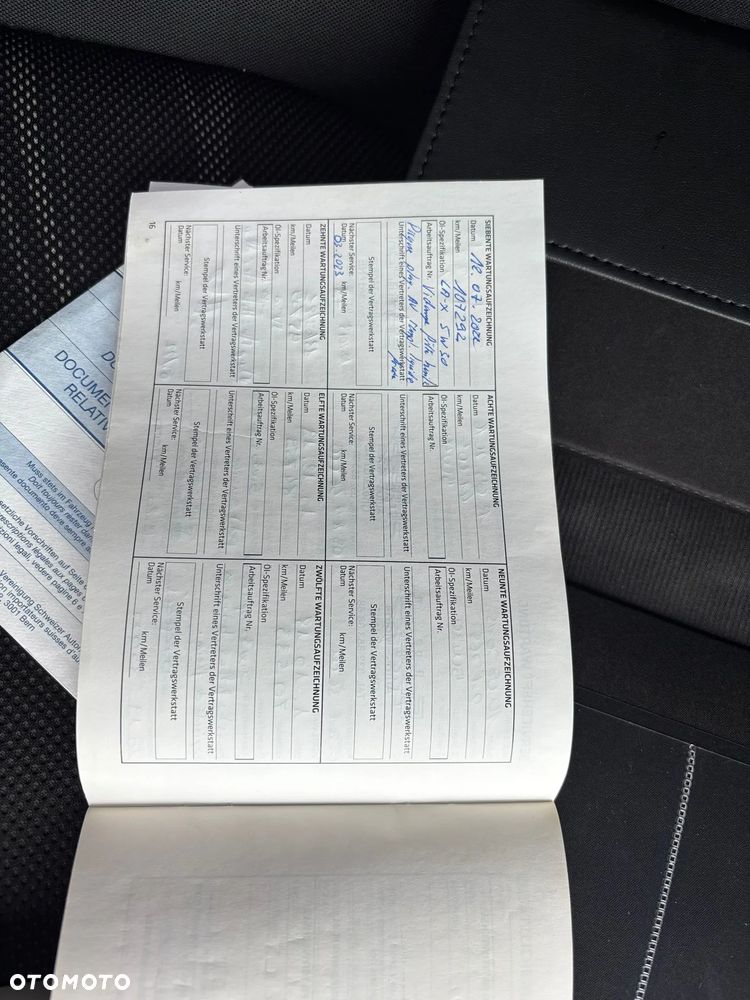 SIEBENTE WARTUNGSAUFZEICHNUNG
Datum 12. 07. 2022
km/Meilen 107292
Öl-Spezifikation 5W30
Arbeitsauftrag Nr. Vidange
Unterschrift eines Vertreters der Vertragswerkstatt
Stempel der Vertragswerkstatt
Nächster Service:
Datum 03.2023 km/Meilen
ACHTE WARTUNGSAUFZEICHNUNG
Datum
km/Meilen
Öl-Spezifikation
Arbeitsauftrag Nr.
Unterschrift eines Vertreters der Vertragswerkstatt
Stempel der Vertragswerkstatt
Nächster Service:
Datum km/Meilen
NEUNTE WARTUNGSAUFZEICHNUNG
Datum
km/Meilen
Öl-Spezifikation
Arbeitsauftrag Nr.
Unterschrift eines Vertreters der Vertragswerkstatt
Stempel der Vertragswerkstatt
Nächster Service:
Datum km/Meilen
ZEHNTE WARTUNGSAUFZEICHNUNG
Datum
km/Meilen
Öl-Spezifikation
Arbeitsauftrag Nr.
Unterschrift eines Vertreters der Vertragswerkstatt
Stempel der Vertragswerkstatt
Nächster Service:
Datum km/Meilen
ELFTE WARTUNGSAUFZEICHNUNG
Datum
km/Meilen
Öl-Spezifikation
Arbeitsauftrag Nr.
Unterschrift eines Vertreters der Vertragswerkstatt
Stempel der Vertragswerkstatt
Nächster Service:
Datum km/Meilen
ZWÖLFTE WARTUNGSAUFZEICHNUNG
Datum
km/Meilen
Öl-Spezifikation
Arbeitsauftrag Nr.
Unterschrift eines Vertreters der Vertragswerkstatt
Stempel der Vertragswerkstatt
Nächster Service:
Datum km/Meilen
16
DOCUMEN
RELATIV
Muss stets im Fahrzeug
Doit toujours rester dan
sente documento deve sempre
setzliche Vorschriften auf Seite
escriptions légales aux pages
izioni legali, vedere pagine 6 e
Vereinigung Schweizer Autom
importateurs suisses d'au
3001 Bern
OTOMOTO